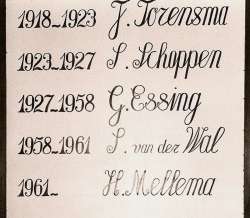 1918-1923 J. Torensma
1923-1927 S. Schoppen
1927-1958 G. Essing
1958-1961 S. van der Wal
1961- H. Mellema